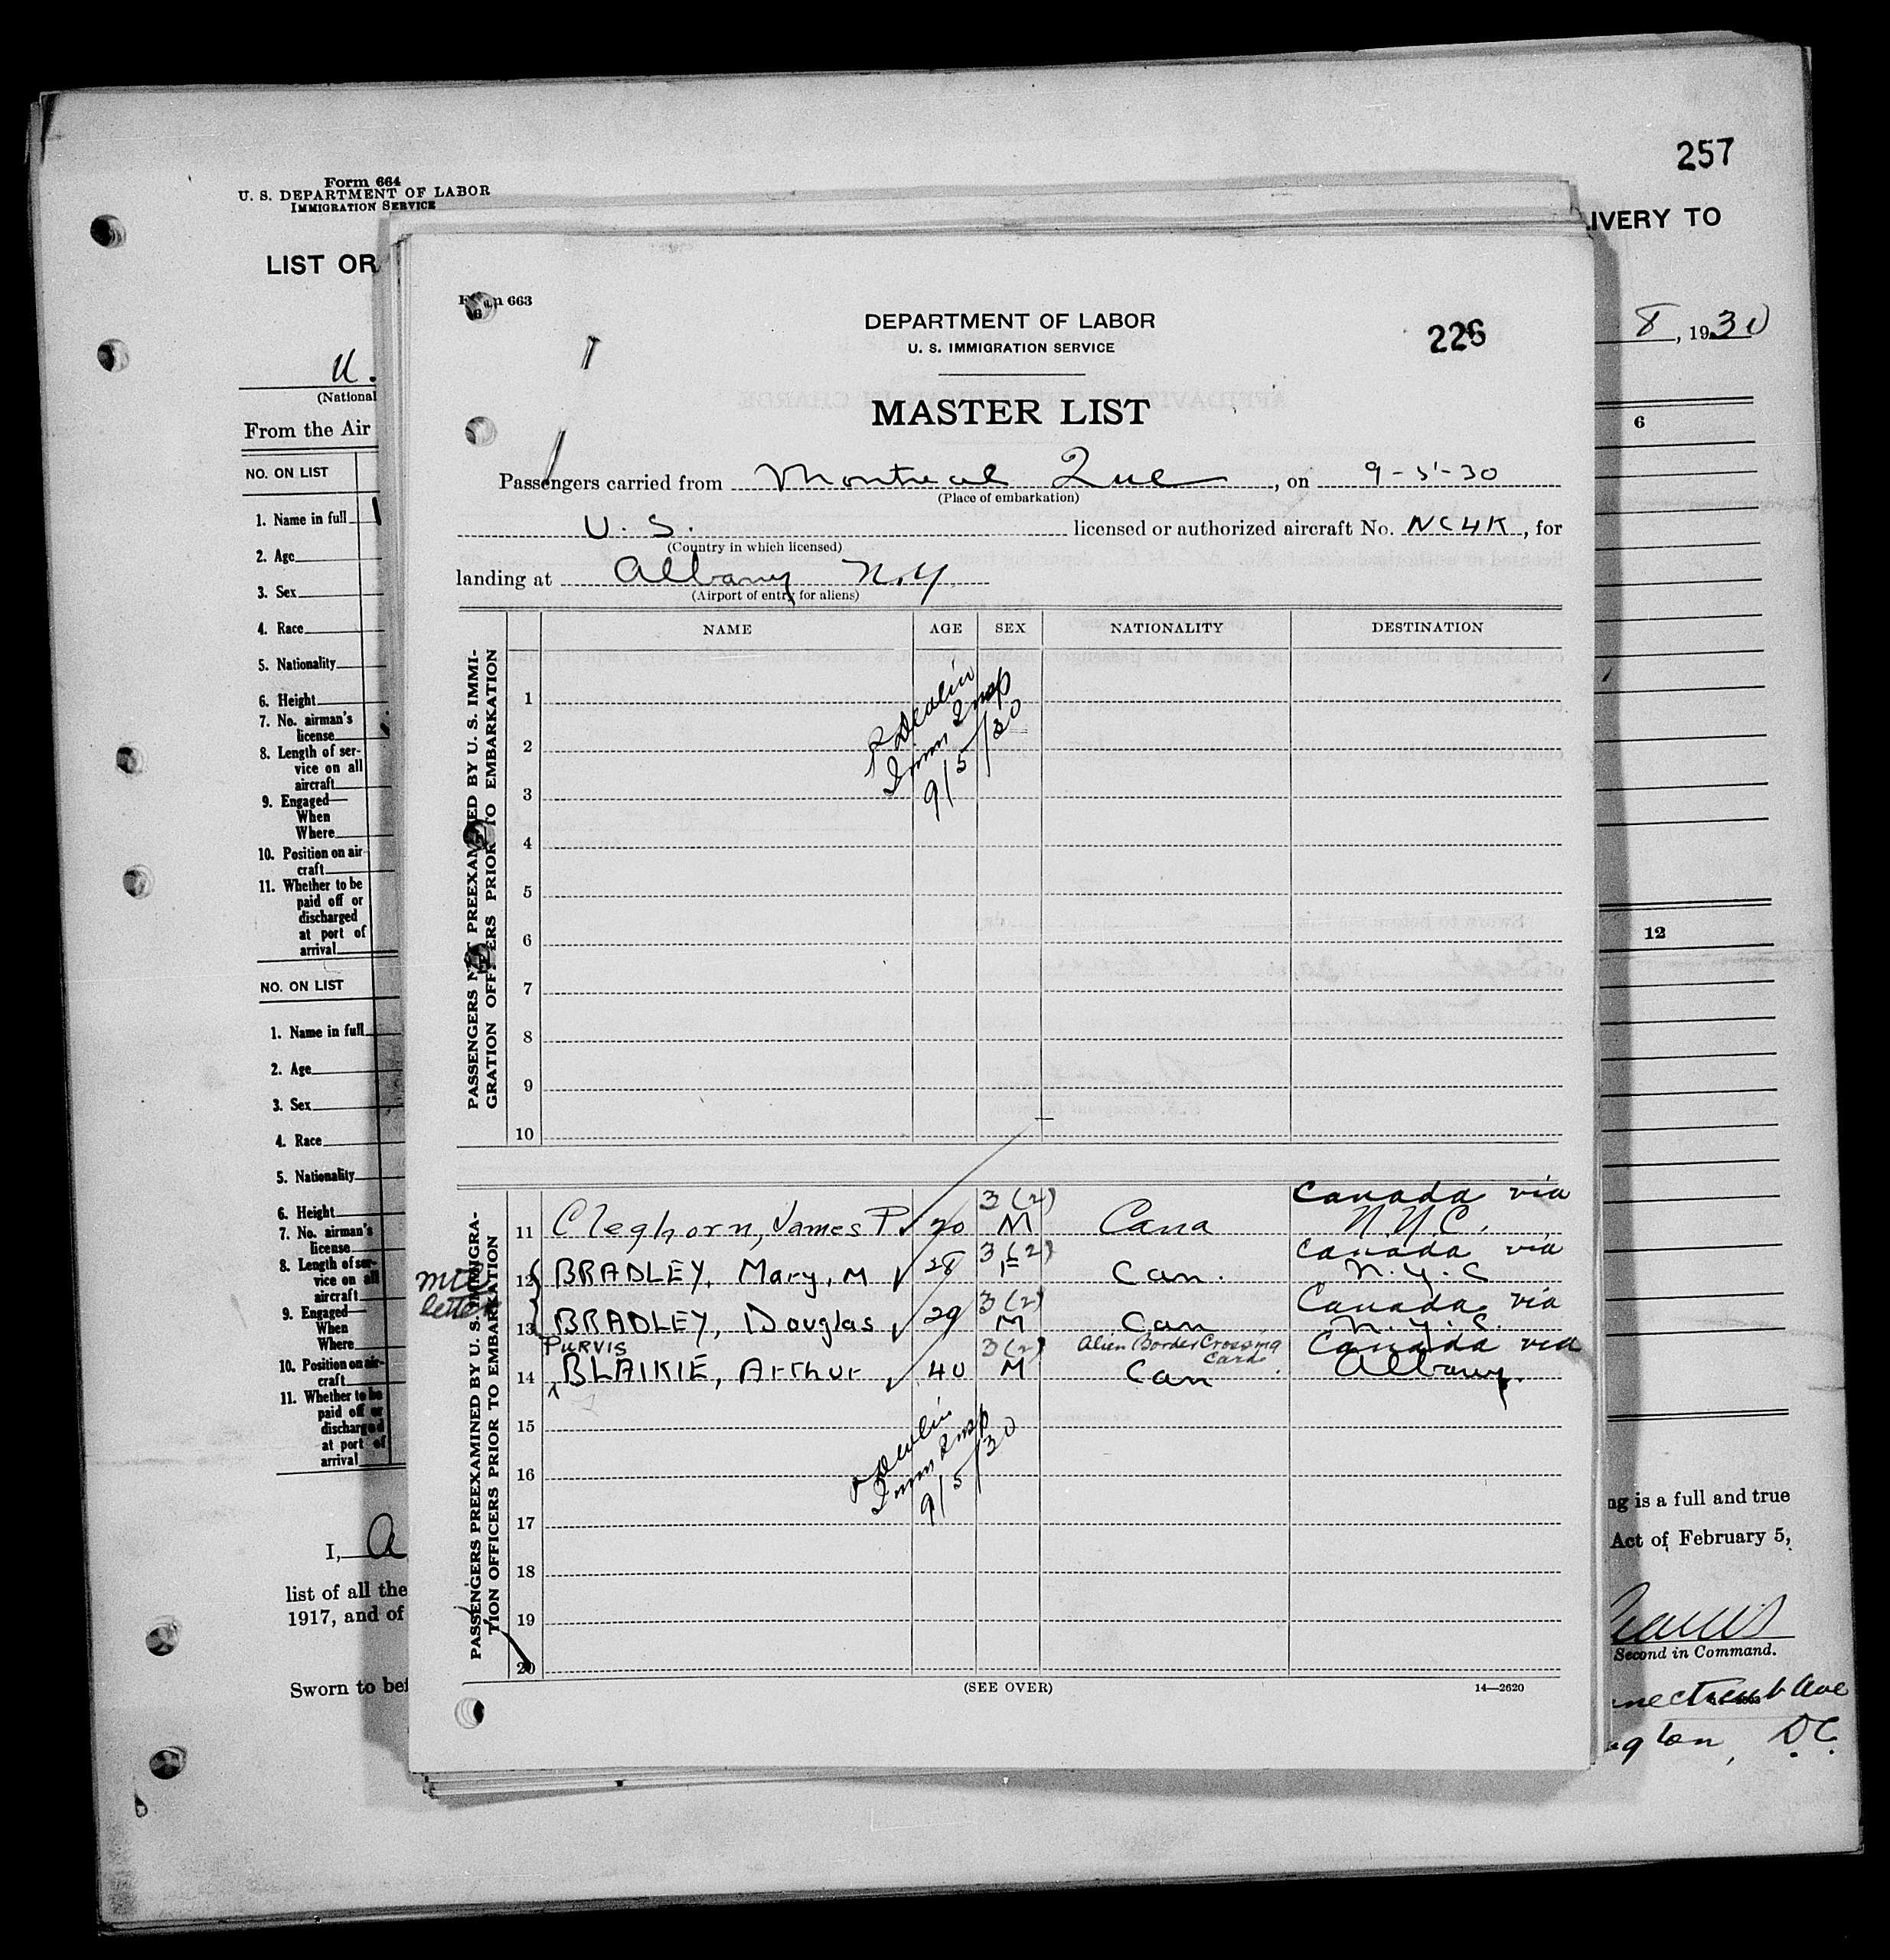 257
Form 664
U. S. DEPARTMENT OF LABOR
IMMIGRATION SERVICE
LIVERY TO
LIST OR
8, 1930
U.
(National
From the Air
6
NO. ON LIST
1. Name in full
2. Age
3. Sex
4. Race
5. Nationality
6. Height
7. No. airman's
license
8. Length of ser-
vice on all
aircraft
9. Engaged—
When
Where
10. Position on air-
craft
11. Whether to be
paid off or
discharged
at port of
arrival
12
NO. ON LIST
1. Name in full
2. Age
3. Sex
4. Race
5. Nationality
6. Height
7. No. airman's
license
8. Length of ser-
vice on all
aircraft
9. Engaged—
When
Where
10. Position on air-
craft
11. Whether to be
paid off or
discharged
at port of
arrival
ng is a full and true
I, A
Act of February 5,
list of all the
1917, and of
Second in Command.
Sworn to bef
nnecticut Ave
ngton, D.C.
Form 663
DEPARTMENT OF LABOR
U. S. IMMIGRATION SERVICE
226
MASTER LIST
Passengers carried from Montreal Que, on 9-5-30
(Place of embarkation)
U. S. licensed or authorized aircraft No. NC4K, for
(Country in which licensed)
landing at Albany N.Y.
(Airport of entry for aliens)
NAME AGE SEX NATIONALITY DESTINATION
PASSENGERS NOT PREEXAMINED BY U. S. IMMI-
GRATION OFFICERS PRIOR TO EMBARKATION
1
2
3
4
5
6
7
8
9
10
Devlin
Imm Insp
9/5/30
PASSENGERS PREEXAMINED BY U. S. IMMIGRA-
TION OFFICERS PRIOR TO EMBARKATION
3(2) Canada via
11 Cleghorn, James P. 20 M Cana N.Y.C.
3(2) Canada via
12 BRADLEY, Mary, M 28 F Can. N.Y.C
letter
3(2) Canada via
13 BRADLEY, Douglas 29 M Can N.Y.C.
PURVIS 3(2) Alien Border Crossing Card Canada via
14 BLAIKIE, Arthur 40 M Can Albany.
15
16
17
18
19
20
Devlin
Imm Insp
9/5/30
(SEE OVER)
14—2620